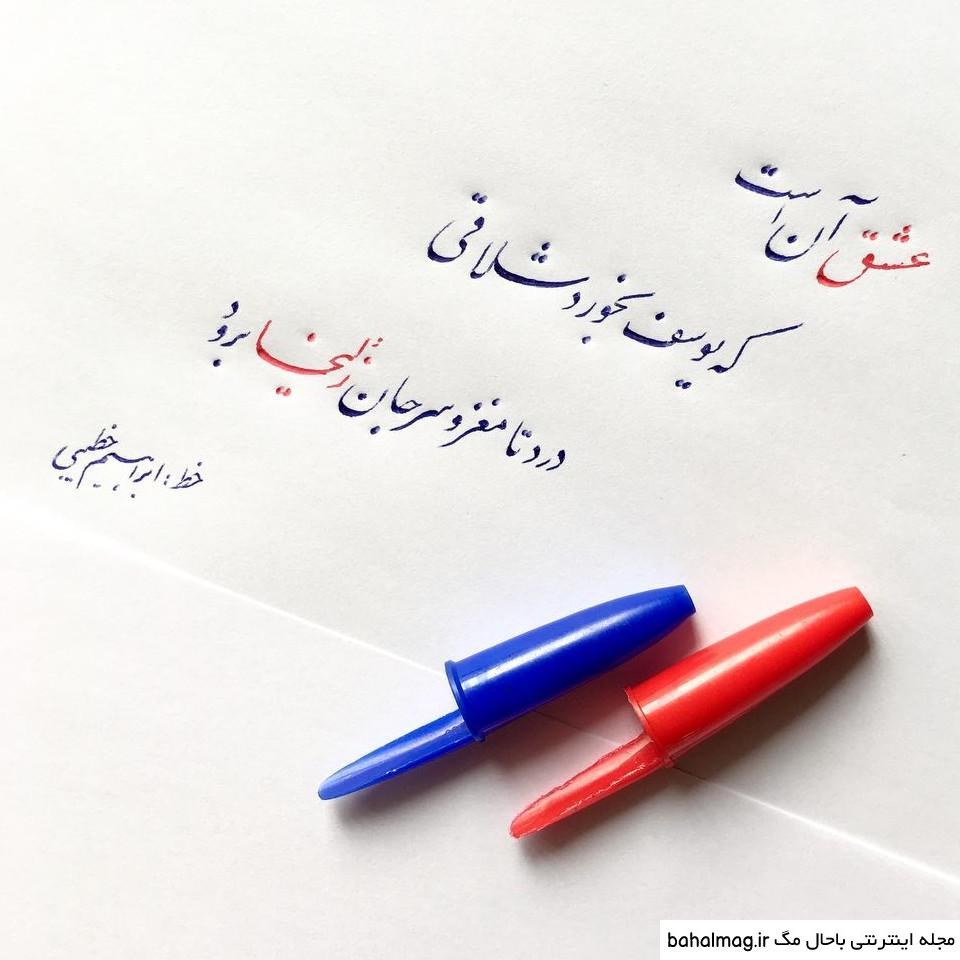 عشق آن است
که یوسف بخورد شلاقی
درد تا مغز و سر جان زلیخا برود
خط: ابراهیم خطیبی
مجله اینترنتی باحال مگ bahalmag.ir